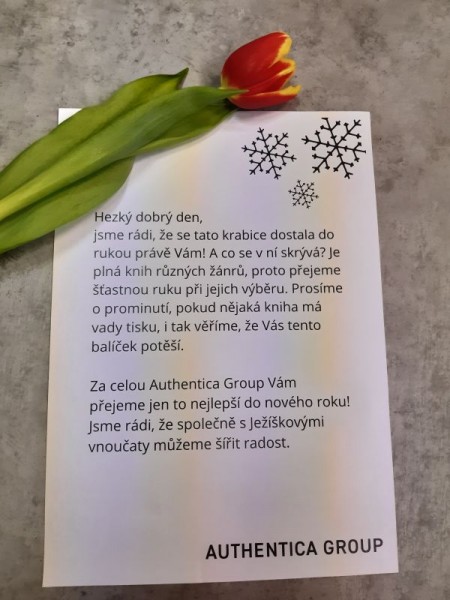 Hezký dobrý den,
jsme rádi, že se tato krabice dostala do
rukou právě Vám! A co se v ní skrývá? Je
plná knih různých žánrů, proto přejeme
šťastnou ruku při jejich výběru. Prosíme
o prominutí, pokud nějaká kniha má
vady tisku, i tak věříme, že Vás tento
balíček potěší.
Za celou Authentica Group Vám
přejeme jen to nejlepší do nového roku!
Jsme rádi, že společně s Ježíškovými
vnoučaty můžeme šířit radost.
AUTHENTICA GROUP